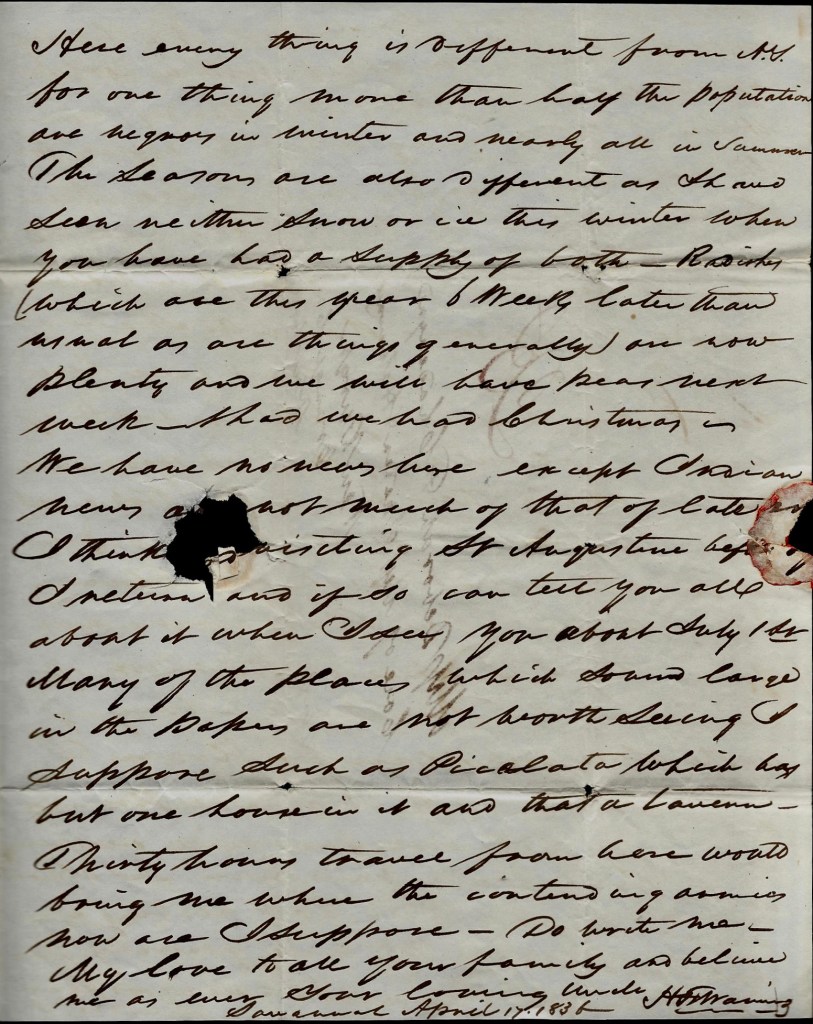 Here every thing is different from N.Y.
for one thing more than half the population
are negroes in winter and nearly all in Summer
The Seasons are also different as I have
seen neither Snow or ice this winter when
you have had a supply of both – Radishes
(which are this year 6 Weeks later than
usual as are things generally) are now
plenty and we will have peas next
week – had we had Christmas
We have no news here except Indian
news not much of that of late
I think visiting St Augustine
I return and if so can tell you all
about it when I see you about July 1st
Many of the places which sound large
in the papers are not worth seeing I
suppose such as Picolata which has
but one house in it and that a tavern –
Thirty hours travel from here would
bring me where the contending armies
now are I suppose – Do write me –
My love to all your family and believe
me as ever your loving Uncle
Savannah April 17. 1836